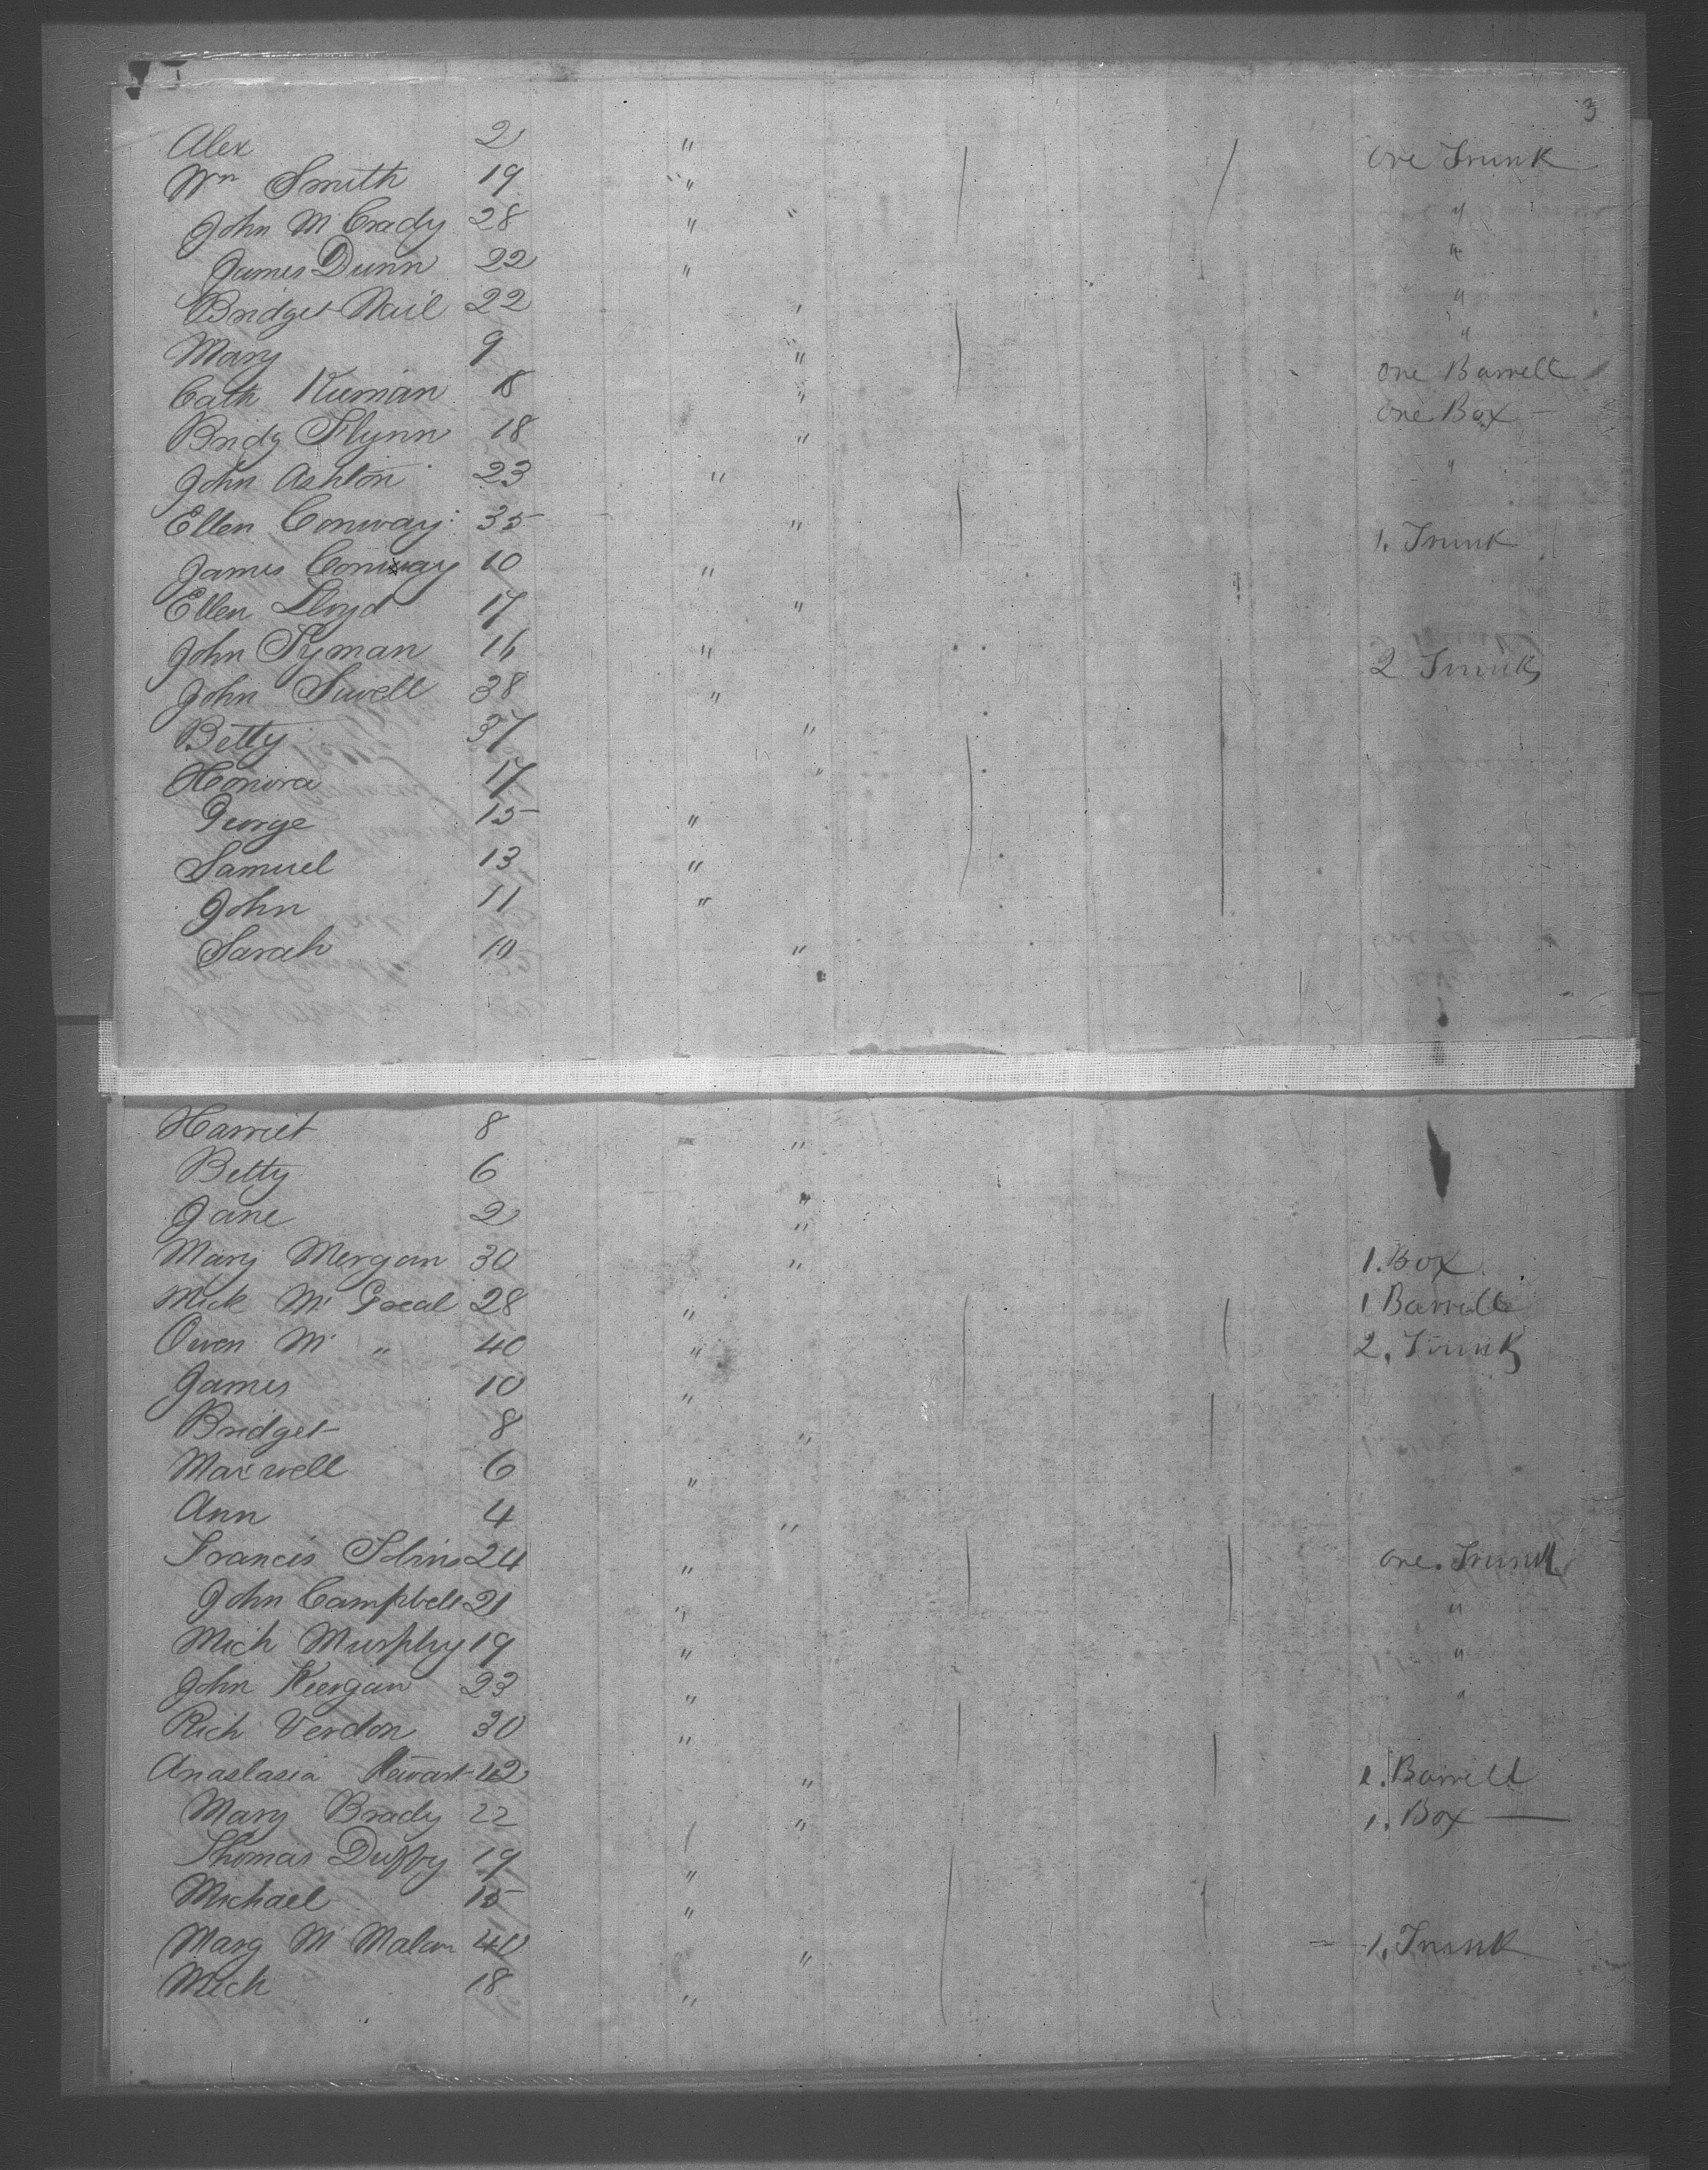 3
Alex 2 " One Trunk
Wm Smith 19 " "
John Mc Crady 28 " "
James Dunn 22 " "
Bridget Nail 22 " "
Mary 9 " One Barrell
Cath Kiernan 18 " One Box
Bridg Flynn 18 " "
John Ashton 23 "
Ellen Conway 35 " 1. Trunk
James Conway 10 "
Ellen Lloyd 17 "
John Ryman 16 " 2 Trunks
John Sewell 38 "
Betty 37 "
Honora 17 "
George 15 "
Samuel 13 "
John 11 "
Sarah 10 "
Harriet 8 "
Betty 6 "
Jane 2 "
Mary Mergan 30 " 1. Box
Mick Mc Greal 28 " 1 Barrell
Owen Mc " 40 " 2. Trunks
James 10 "
Bridget 8 "
Maxwell 6 "
Ann 4 "
Francis 24 " One Trunk
John Campbell 21 " "
Mich Murphy 19 " "
John Keegan 23 " "
Rich Verdon 30 "
Anastasia Stewart 42 " 1. Barrell
Mary Brady 22 " 1. Box
Thomas Duffy 19 "
Michael 15 "
Marg Mc 40 " 1. Trunk
Mick 18 "